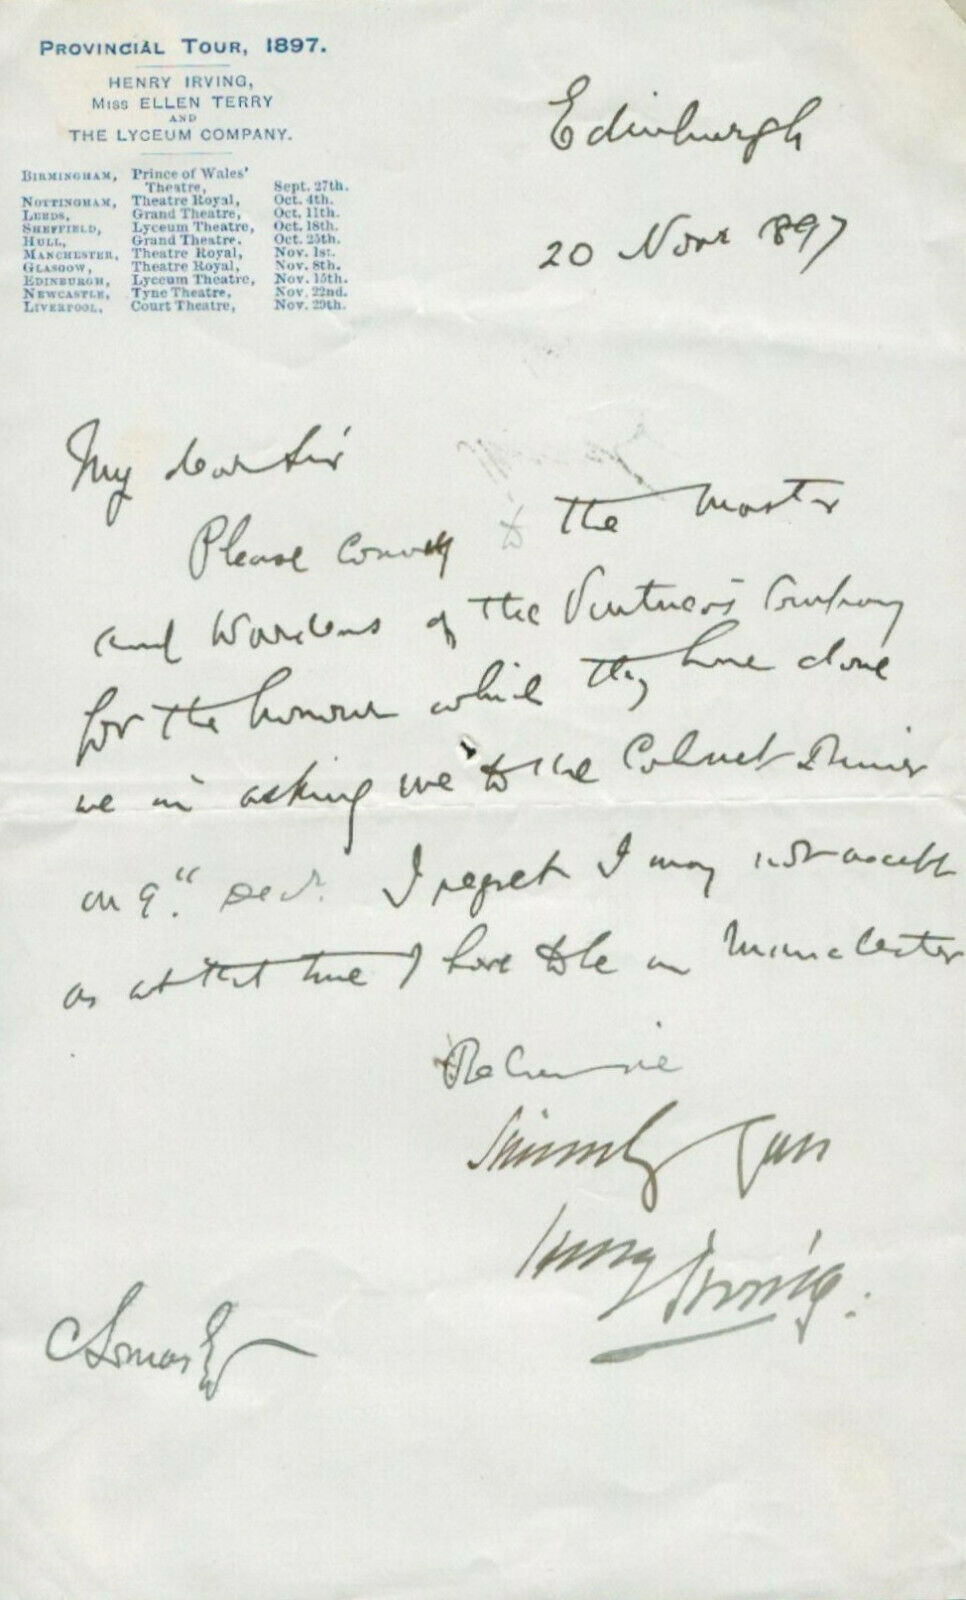 PROVINCIAL TOUR, 1897.
HENRY IRVING,
MISS ELLEN TERRY
AND
THE LYCEUM COMPANY.
BIRMINGHAM, Prince of Wales' Theatre, Sept. 27th.
NOTTINGHAM, Theatre Royal, Oct. 4th.
LEEDS, Grand Theatre, Oct. 11th.
SHEFFIELD, Lyceum Theatre, Oct. 18th.
HULL, Grand Theatre, Oct. 25th.
MANCHESTER, Theatre Royal, Nov. 1st.
GLASGOW, Theatre Royal, Nov. 8th.
EDINBURGH, Lyceum Theatre, Nov. 15th.
NEWCASTLE, Tyne Theatre, Nov. 22nd.
LIVERPOOL, Court Theatre, Nov. 29th.
Edinburgh
20 Novr 1897
My dear Sir
Please convey to the Master
and Wardens of the Vintners Company
for the honour which they have done
me in asking me to the Dinner
on 9" Decr. I regret I may not accept
as at that time I have to be in Manchester
Believe me
Sincerely Yours
Henry Irving.
C Lomas Esq